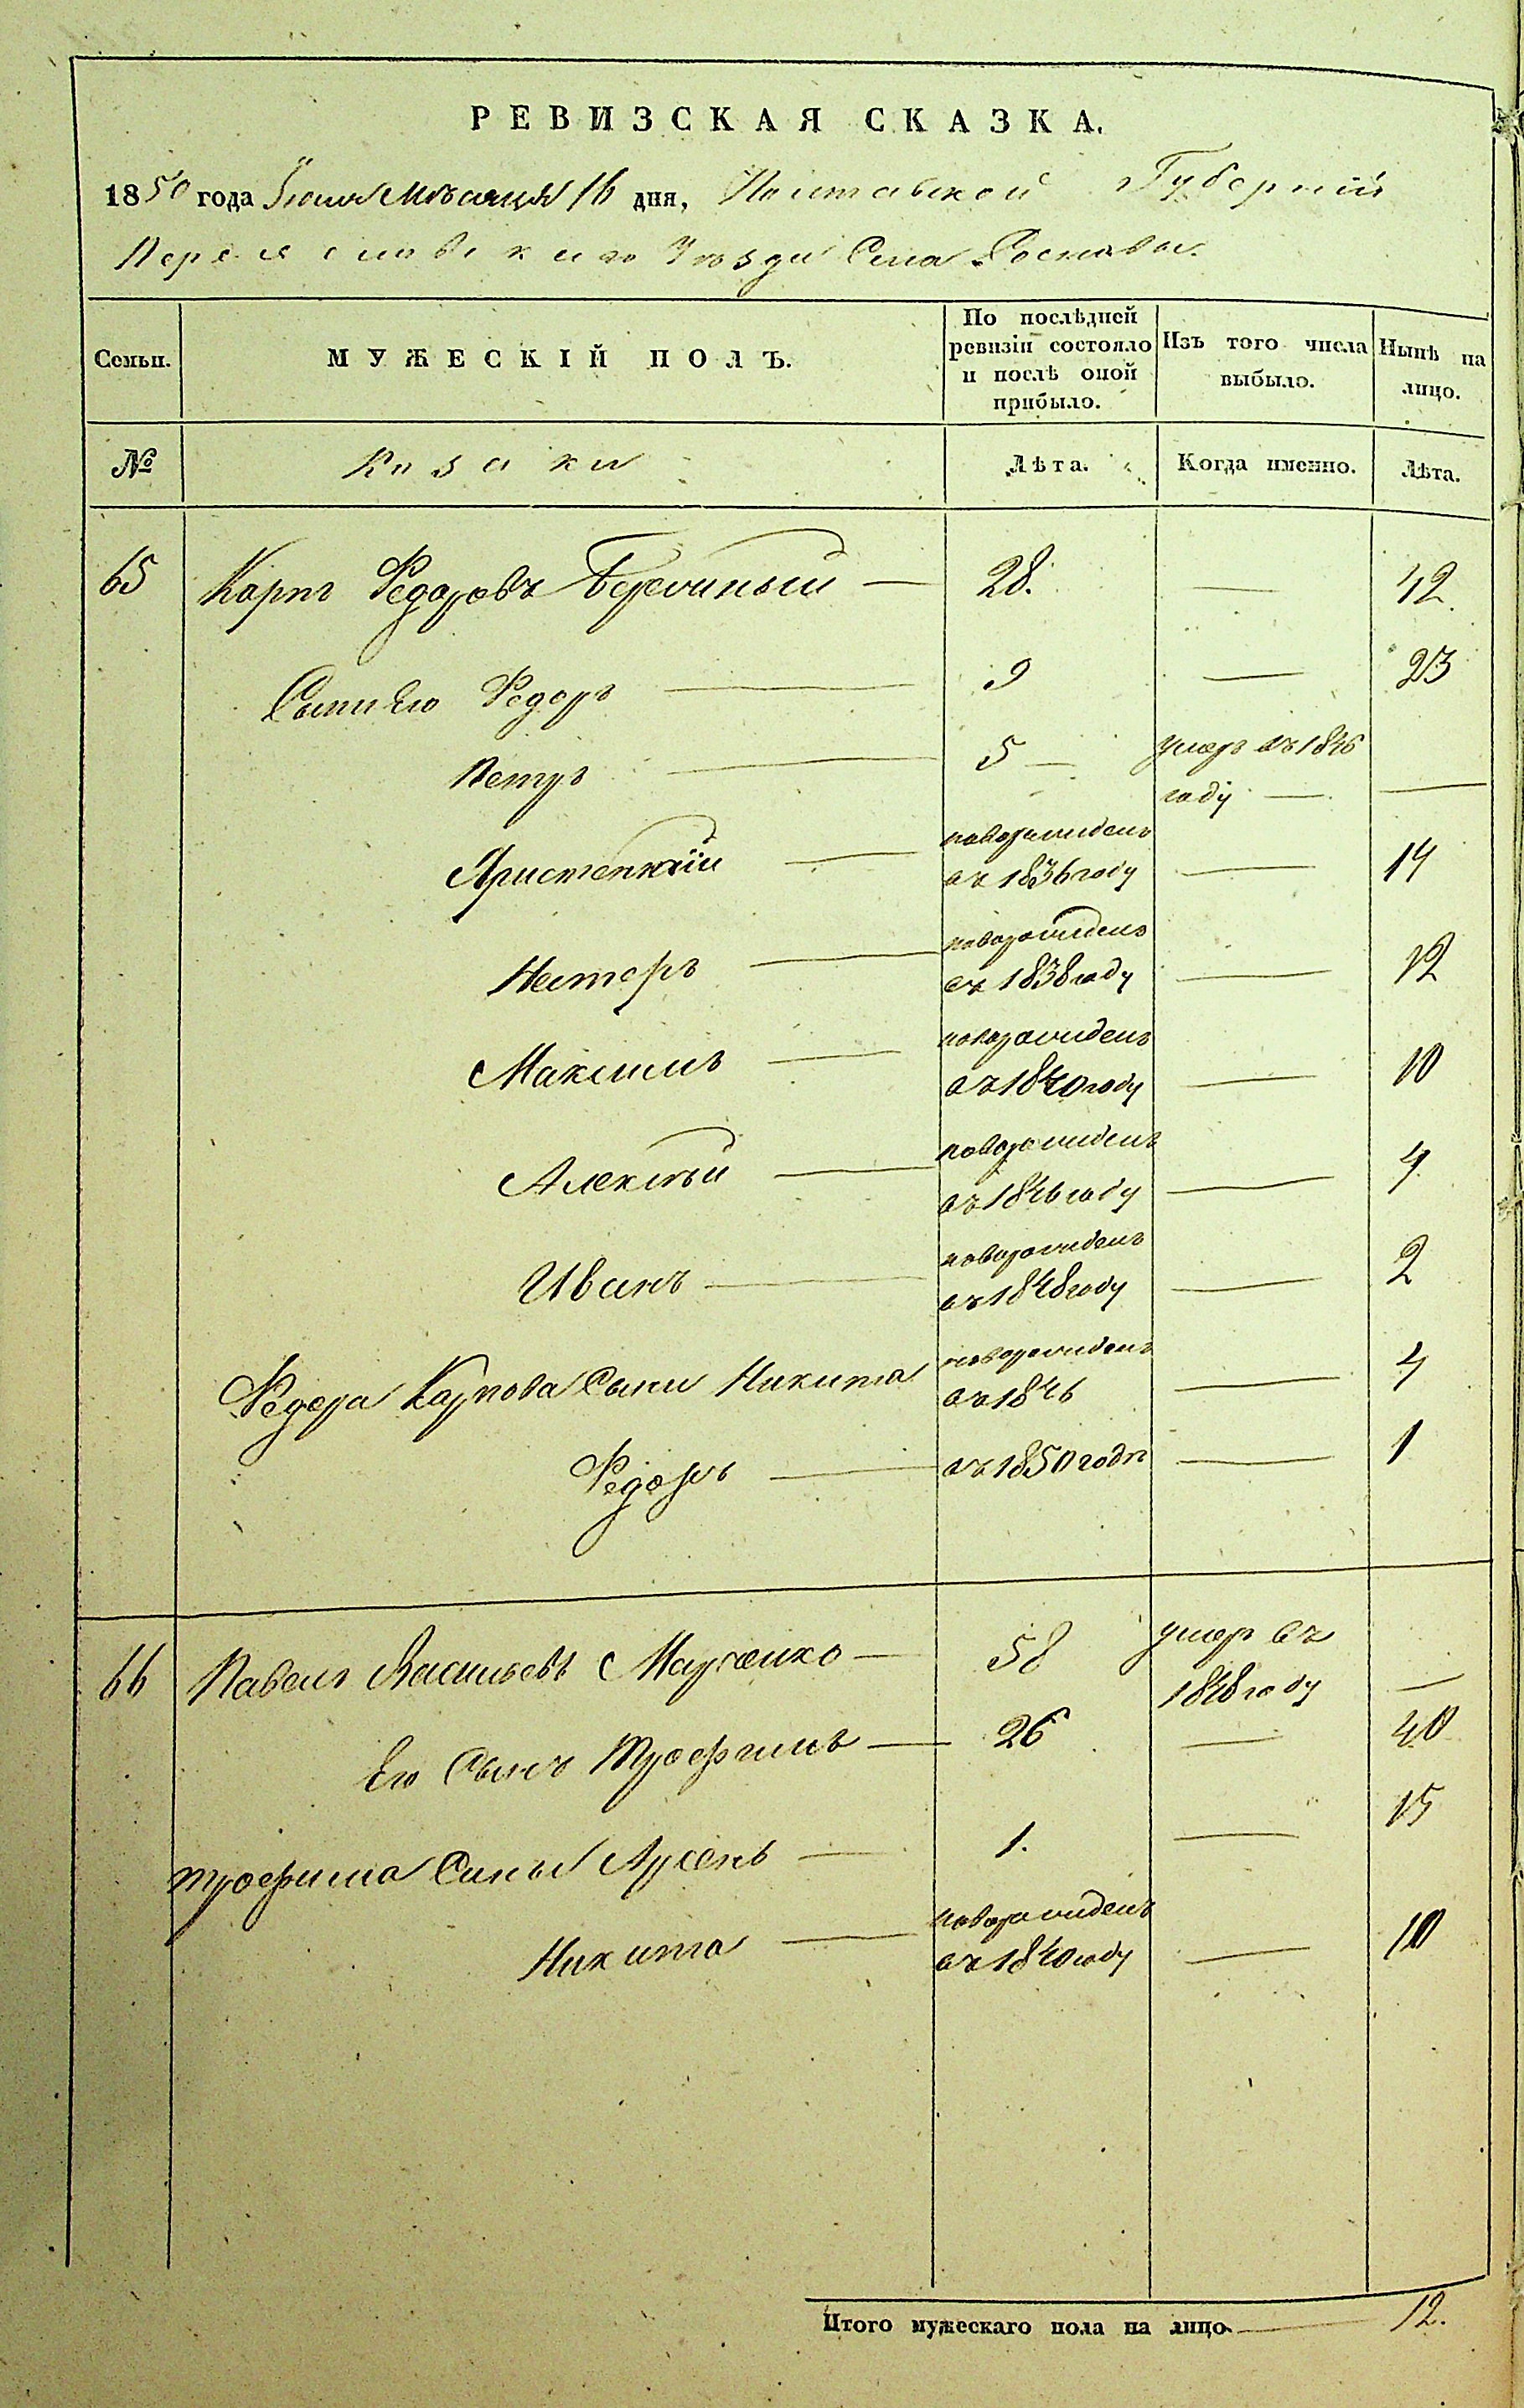 РЕВИЗСКАЯ СКАЗКА.
1850 года Іюня Мѣсяца 16 дня, Полтавской Губерніи
Переяславскаго Уѣзда Села
Семьи. МУЖЕСКІЙ ПОЛЪ. По послѣдней ревизіи состояло и послѣ оной прибыло. Изъ того числа выбыло. Нынѣ на лицо.
№ Козаки Лѣта. Когда именно. Лѣта.
65 Карпъ Федоровъ — 28. — 42.
Сыни Его Федоръ — 9 — 23
Петръ — 5 — умеръ въ 1846 году — —
— новорожденъ въ 1836 году — 14
Несторъ — новорожденъ въ 1838 году — 12
Максимъ — новорожденъ въ 1840 году — 10
Алексѣй — новорожденъ въ 1846 году — 4
Иванъ — новорожденъ въ 1848 году — 2
Федора Карпова Сыни Никита новорожденъ въ 1846 — 4
Федоръ — въ 1850 годѣ — 1
66 Павелъ Васильевъ Марченко — 58 умеръ въ 1848 году —
Его Сынъ Трофимъ — 26 — 40
Трофима Сины Арсенъ — 1. — 15
Никита — новорожденъ въ 1840 году — 10
Итого мужескаго пола на лицо — 12.